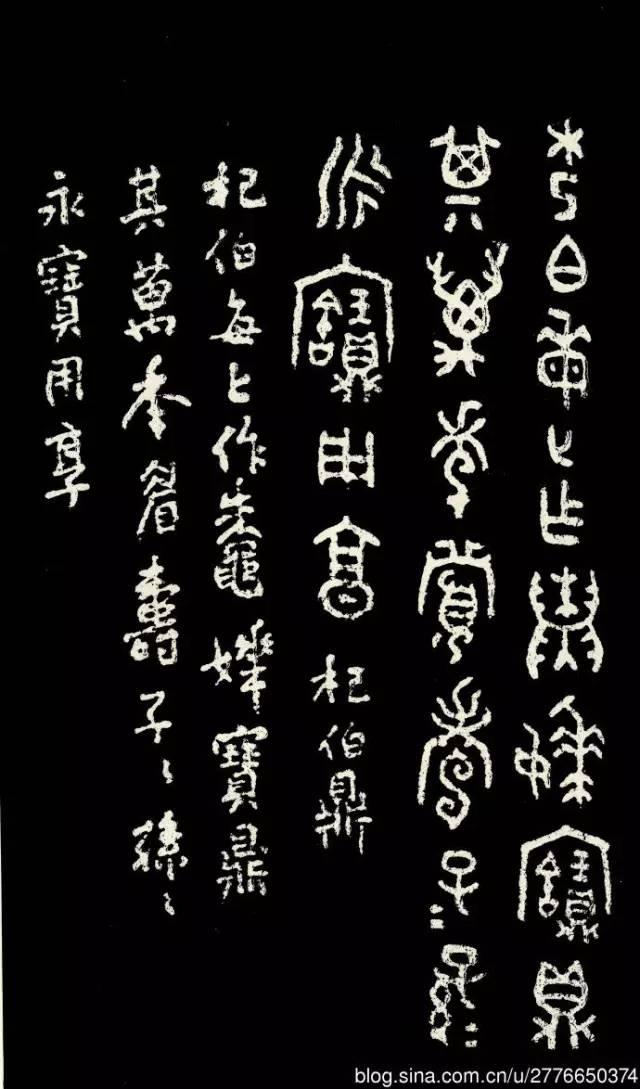 杞伯每匕乍鼄寶鼎
其萬年眉壽子〻孫〻
永寶用享 杞伯鼎
杞伯每匕作鼄寶鼎
其萬年眉壽子〻孫〻
永寶用享
blog.sina.com.cn/u/2776650374